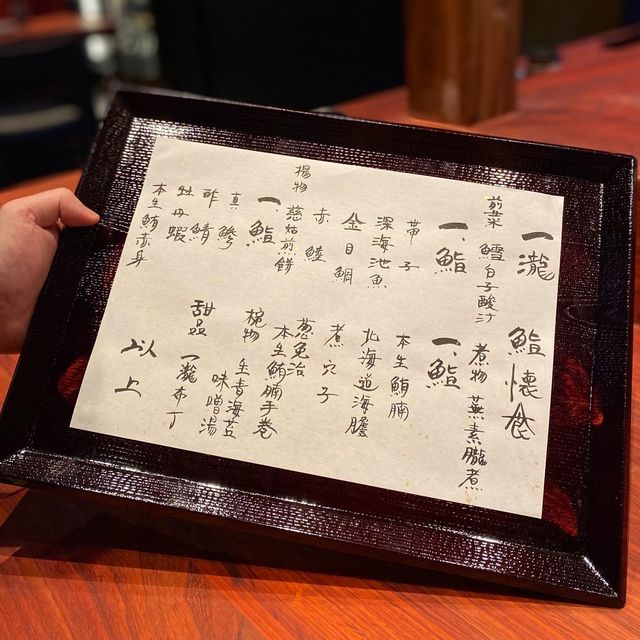 一瀧 鮨懐食
前菜 鱈白子酸汁
一、鮨
帯子
深海池魚
金目鯛
赤鯥
揚物 慈姑煎餅
一、鮨
真鯵
酢鯖
牡丹蝦
本生鮪赤身
煮物 蕪素朧煮
一、鮨
本生鮪腩
北海道海膽
煮穴子
葱免治
本生鮪腩手巻
椀物 生青海苔
味噌湯
甜品 一瀧布丁
以上